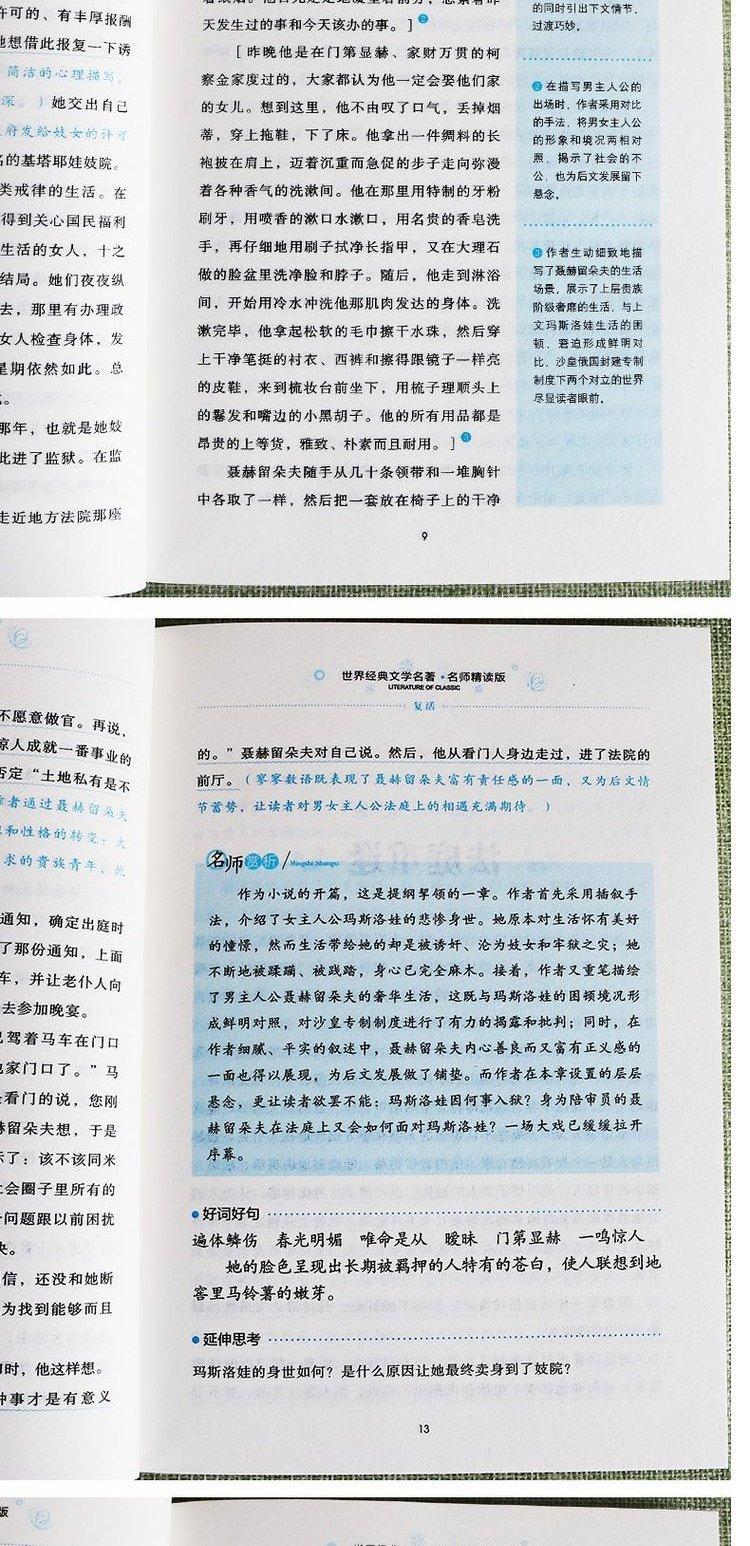 许可的、有丰厚报酬
她想借此报复一下诱
简洁的心理描写，
深。）她交出自己
府发给妓女的许可
名的基塔耶娃妓院。
类戒律的生活。在
得到关心国民福利
生活的女人，十之
结局。她们夜夜纵
去，那里有办理政
女人检查身体，发
星期依然如此。总
那年，也就是她妓
此进了监狱。在监
走近地方法院那座
天发生过的事和今天该办的事。]❷
[昨晚他是在门第显赫、家财万贯的柯
察金家度过的，大家都认为他一定会娶他们家
的女儿。想到这里，他不由叹了口气，丢掉烟
蒂，穿上拖鞋，下了床。他拿出一件绸料的长
袍披在肩上，迈着沉重而急促的步子走向弥漫
着各种香气的洗漱间。他在那里用特制的牙粉
刷牙，用喷香的漱口水漱口，用名贵的香皂洗
手，再仔细地用刷子拭净长指甲，又在大理石
做的脸盆里洗净脸和脖子。随后，他走到淋浴
间，开始用冷水冲洗他那肌肉发达的身体。洗
漱完毕，他拿起松软的毛巾擦干水珠，然后穿
上干净笔挺的衬衣、西裤和擦得跟镜子一样亮
的皮鞋，来到梳妆台前坐下，用梳子理顺头上
的鬈发和嘴边的小黑胡子。他的所有用品都是
昂贵的上等货，雅致、朴素而且耐用。]❸
聂赫留朵夫随手从几十条领带和一堆胸针
中各取了一样，然后把一套放在椅子上的干净
的同时引出下文情节，
过渡巧妙。
❷在描写男主人公的
出场时，作者采用对比
的手法，将男女主人公
的形象和境况两相对
照，揭示了社会的不
公，也为后文发展留下
悬念。
❸作者生动细致地描
写了聂赫留朵夫的生活
场景，展示了上层贵族
阶级奢靡的生活，与上
文玛斯洛娃生活的困
顿、窘迫形成鲜明对
比，沙皇俄国封建专制
制度下两个对立的世界
尽显读者眼前。
9
不愿意做官。再说，
惊人成就一番事业的
否定“土地私有是不
作者通过聂赫留朵夫
和性格的转变：大
求的贵族青年，此
通知，确定出庭时
了那份通知，上面
车，并让老仆人向
去参加晚宴。
已驾着马车在门口
他家门口了。”马
看门的说，您刚
赫留朵夫想，于是
示了：该不该同米
社会圈子里所有的
问题跟以前困扰
决。
信，还没和她断
为找到能够而且
时，他这样想。
种事才是有意义
世界经典文学名著·名师精读版
LITERATURE OF CLASSIC
复活
的。”聂赫留朵夫对自己说。然后，他从看门人身边走过，进了法院的
前厅。（寥寥数语既表现了聂赫留朵夫富有责任感的一面，又为后文情
节蓄势，让读者对男女主人公法庭上的相遇充满期待。）
名师赏析/Mingshi Shangxi
作为小说的开篇，这是提纲挈领的一章。作者首先采用插叙手
法，介绍了女主人公玛斯洛娃的悲惨身世。她原本对生活怀有美好
的憧憬，然而生活带给她的却是被诱奸、沦为妓女和牢狱之灾；她
不断地被蹂躏、被践踏，身心已完全麻木。接着，作者又重笔描绘
了男主人公聂赫留朵夫的奢华生活，这既与玛斯洛娃的困顿境况形
成鲜明对照，对沙皇专制制度进行了有力的揭露和批判；同时，在
作者细腻、平实的叙述中，聂赫留朵夫内心善良而又富有正义感的
一面也得以展现，为后文发展做了铺垫。而作者在本章设置的层层
悬念，更让读者欲罢不能：玛斯洛娃因何事入狱？身为陪审员的聂
赫留朵夫在法庭上又会如何面对玛斯洛娃？一场大戏已缓缓拉开
序幕。
●好词好句
遍体鳞伤 春光明媚 唯命是从 暧昧 门第显赫 一鸣惊人
她的脸色呈现出长期被羁押的人特有的苍白，使人联想到地
窖里马铃薯的嫩芽。
●延伸思考
玛斯洛娃的身世如何？是什么原因让她最终卖身到了妓院？
13
版